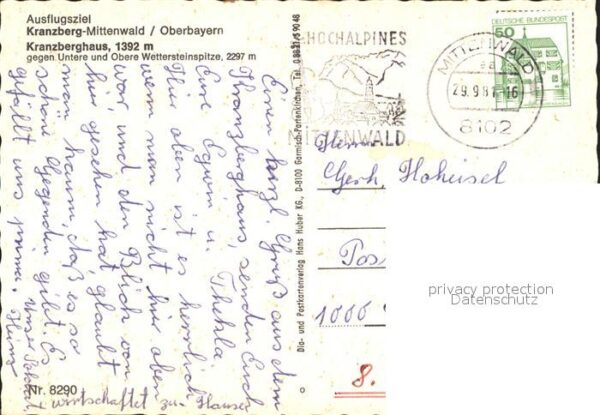 Ausflugsziel
Kranzberg-Mittenwald / Oberbayern
Kranzberghaus, 1392 m
gegen Untere und Obere Wettersteinspitze, 2297 m
Einen herzl. Gruß aus dem
Kranzberghaus, senden Euch
Eure Egwin u. Thekla
Hier oben ist es herrlich
wenn man nicht hier oben
war und den Blick von
hier gesehen hat glaubt
man kaum, daß es so
schöne Gegenden gibt. Es
gefällt uns prima.
Unser
bewirtschaftet zu Hause
Nr. 8290
Die- und Postkartenverlag Hans Huber KG., D-8100 Garmisch-Partenkirchen, Tel. 0 88 21/5 90 48
HOCHALPINES
MITTENWALD
MITTENWALD
29.9.81-16
8102
DEUTSCHE BUNDESPOST
50
Herrn
Gerh. Hoheisel
Pos
1000
8.
privacy protection
Datenschutz